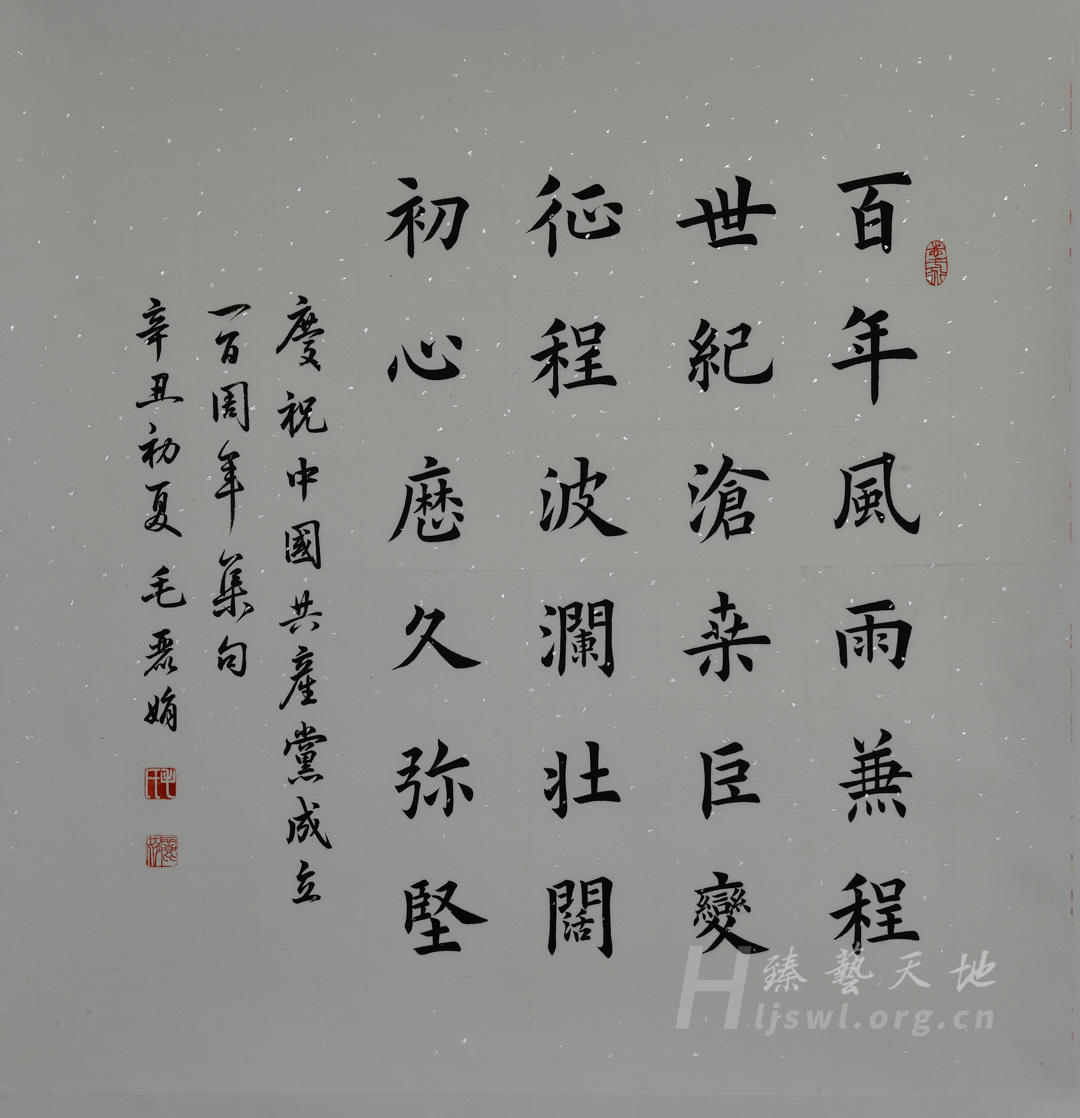 百年風雨兼程
世紀滄桒巨變
征程波瀾壯闊
初心歷久弥堅
慶祝中國共產黨成立
一百周年集句
辛丑初夏毛麗娟
臻藝天地
Hljswl.org.cn